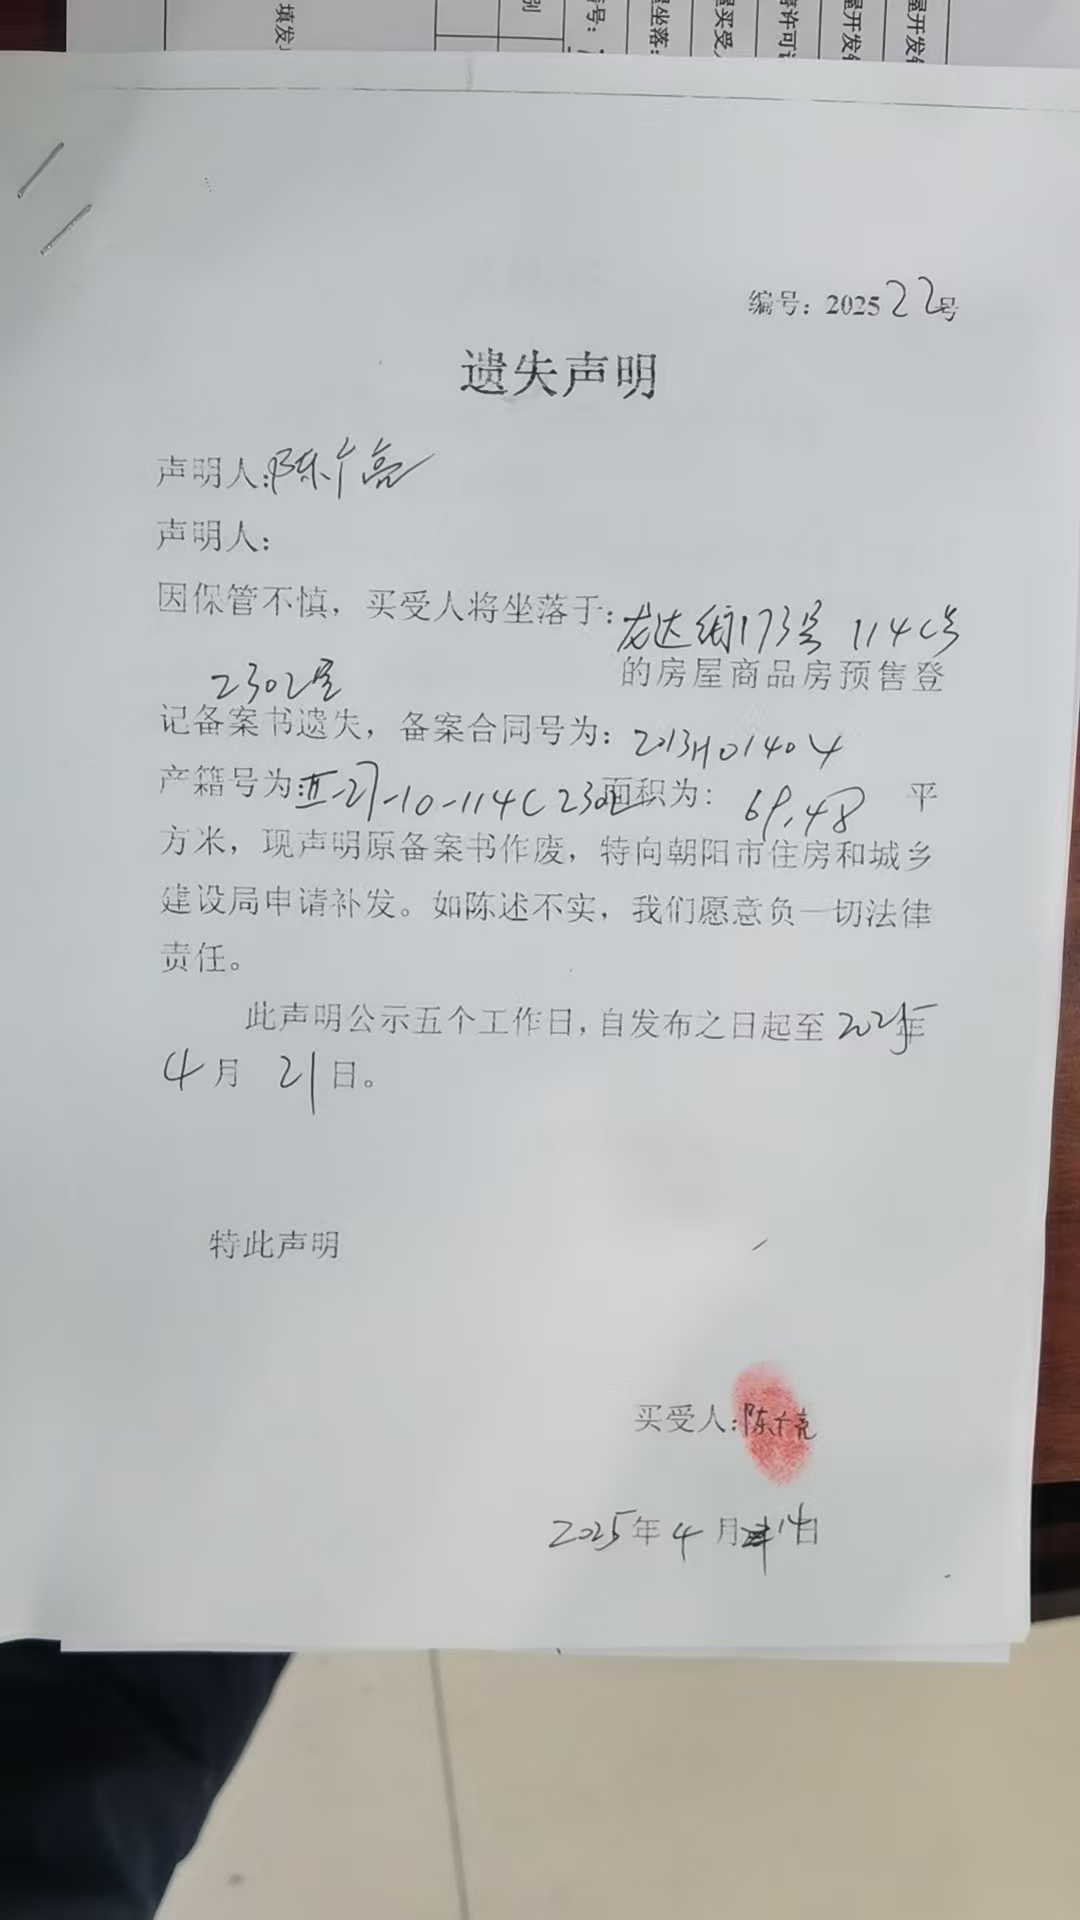 填发
别
号：
坐落：
屋买受
许可
屋开发
屋开发
编号：2025 22号
遗失声明
声明人：陈个亮
声明人：
因保管不慎，买受人将坐落于：龙达街173号 114C号
2302室 的房屋商品房预售登
记备案书遗失，备案合同号为：2013H01404
产籍号为 -27-10-114C 2302 面积为： 69.48 平
方米，现声明原备案书作废，特向朝阳市住房和城乡
建设局申请补发。如陈述不实，我们愿意负一切法律
责任。
此声明公示五个工作日，自发布之日起至2025年
4月 21日。
特此声明
买受人：陈个亮
2025年4月14日